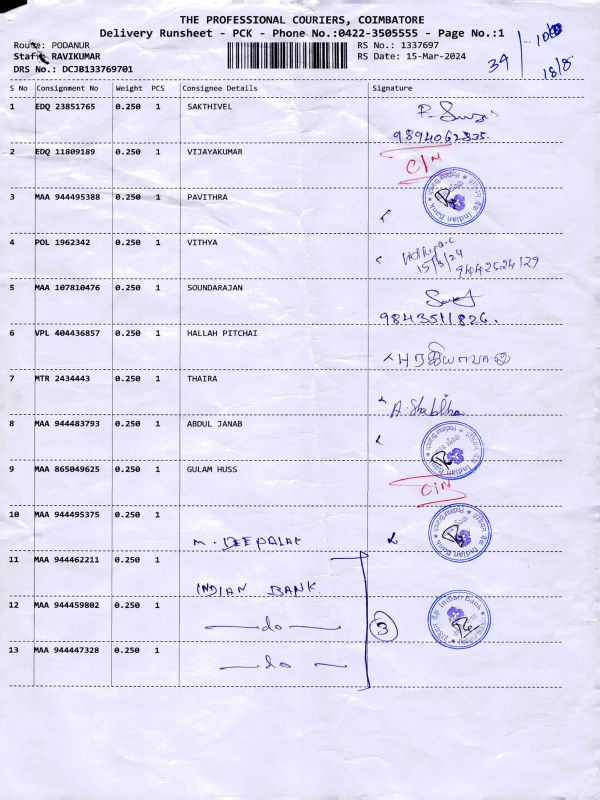 THE PROFESSIONAL COURIERS, COIMBATORE
Delivery Runsheet - PCK - Phone No.:0422-3505555 - Page No.:1
Route: PODANUR
RS No.: 1337697
Staff: RAVIKUMAR
RS Date: 15-Mar-2024
DRS No.: DCJB133769701
34
18/8
S No Consignment No Weight PCS Consignee Details Signature
1 EDQ 23851765 0.250 1 SAKTHIVEL
9894062835.
2 EDQ 11809189 0.250 1 VIJAYAKUMAR C/N
3 MAA 944495388 0.250 1 PAVITHRA
Indian Bank
4 POL 1962342 0.250 1 VITHYA
15/3/24
9442524129
5 MAA 107810476 0.250 1 SOUNDARAJAN
9843511826.
6 VPL 404436857 0.250 1 HALLAH PITCHAI
7 MTR 2434443 0.250 1 THAIRA
A. Shabiha
8 MAA 944483793 0.250 1 ABDUL JANAB
Indian Bank
9 MAA 865049625 0.250 1 GULAM HUSS C/N
10 MAA 944495375 0.250 1
M. DEEPALAK
Indian Bank
11 MAA 944462211 0.250 1
INDIAN BANK
12 MAA 944459802 0.250 1
do
3
Indian Bank
13 MAA 944447328 0.250 1
do